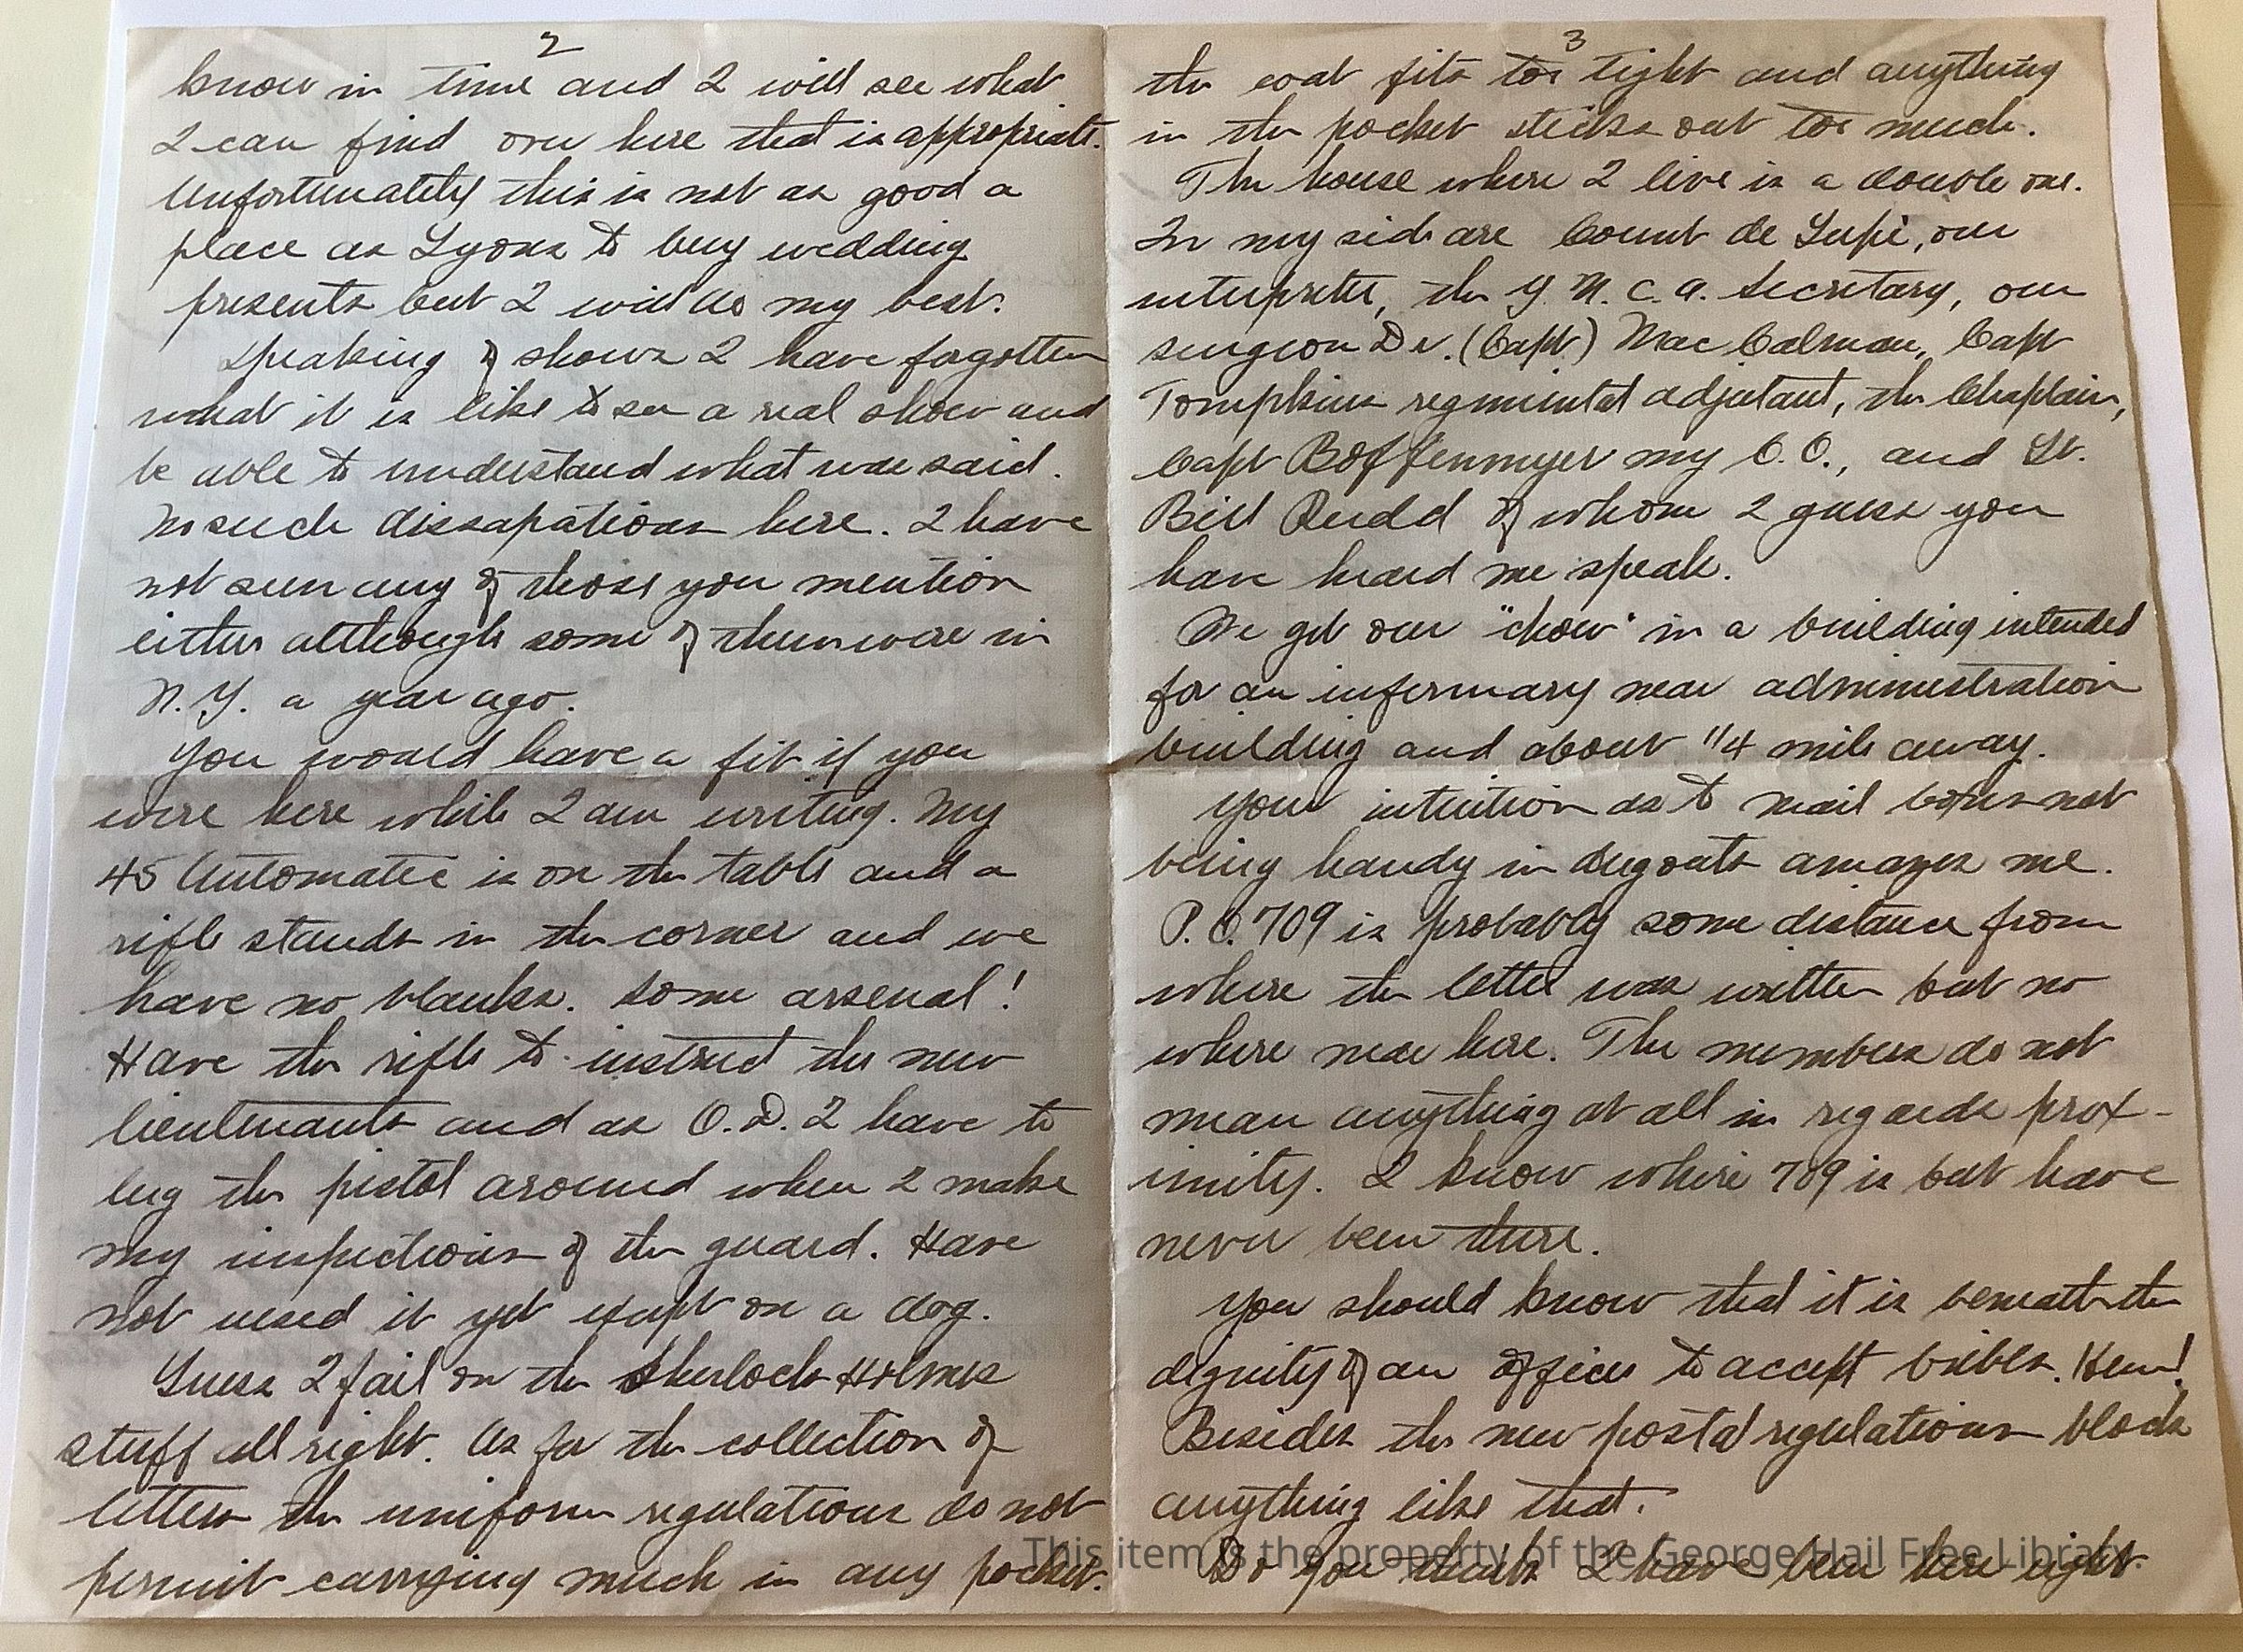 2
know in time and I will see what
I can find over here that is appropriate.
Unfortunately this is not as good a
place as Lyons to buy wedding
presents but I will do my best.
Speaking of shows I have forgotten
what it is like to see a real show and
be able to understand what was said.
No such dissapations here. I have
not seen any of those you mention
either although some of them were in
N.Y. a year ago.
You would have a fit if you
were here while I am writing. My
45 Automatic is on the table and a
rifle stands in the corner and we
have no blanks. Some arsenal!
Have the rifle to instruct the new
lieutenants and as O.D. I have to
lug the pistol around when I make
my inspections of the guard. Have
not used it yet except on a dog.
Guess I fail on the Sherlock Holmes
stuff all right. As for the collection of
letters the uniform regulations do not
permit carrying much in any pocket.
3
the coat fits too tight and anything
in the pocket sticks out too much.
The house where I live is a double one.
In my side are Count de Lupé, our
interpreter, the Y.M.C.A. Secretary, our
surgeon Dr. (Capt.) Mac Calman, Capt
Tompkins regimental adjutant, the Chaplain,
Capt Boffenmyer my C.O., and Lt.
Bill Rudd of whom I guess you
have heard me speak.
We get our "chow" in a building intended
for an infermary near administration
building and about 1/4 mile away.
Your intuition as to mail boxes not
being handy in dugouts amazes me.
P.O. 709 is probably some distance from
where the letter was written but no
where near here. The numbers do not
mean anything at all in regards prox-
imity. I know where 709 is but have
never been there.
You should know that it is beneath the
dignity of an officer to accept bribes. Hem!
Besides the new postal regulations block
anything like that.
Do you think I have been here right
This item is the property of the George Hail Free Library